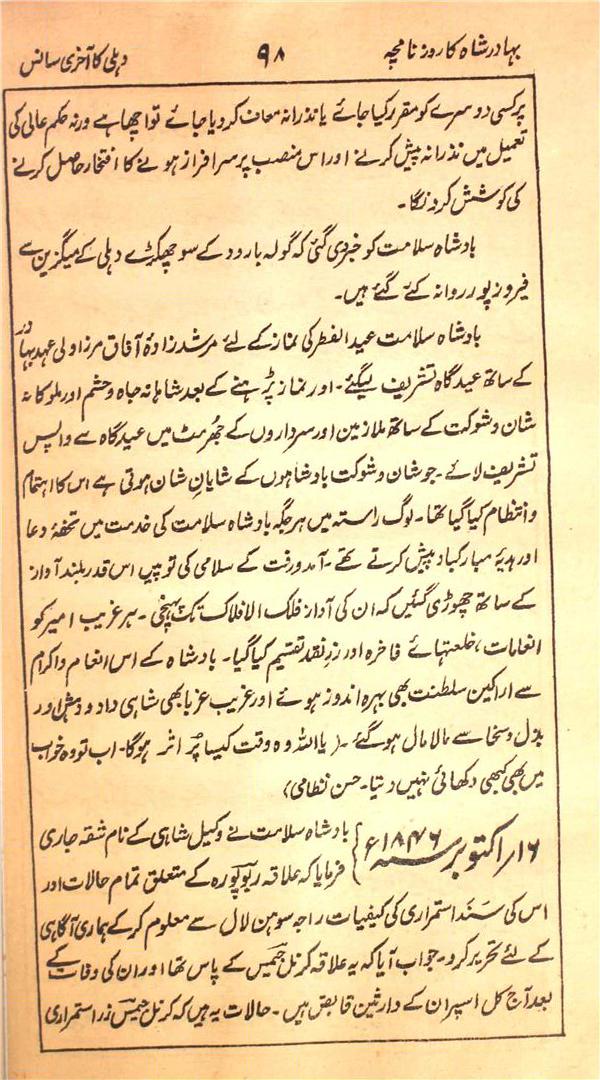 بہادر شاہ کا روزنامچہ
۹۸
دہلی کا آخری سانس
پر کسی دوسرے کو مقرر کیا جائے یا نذرانہ معاف کردیا جائے تو اچھا ہے ورنہ حکم عالی کی
تعمیل میں نذرانہ پیش کرنے اور اس منصب پر سرافراز ہونے کا افتخار حاصل کرنے
کی کوشش کروں گا۔
بادشاہ سلامت کو خبر دی گئی کہ گولہ بارود کے سو چھکڑے دہلی کے میگزین سے
فیروزپور روانہ کئے گئے ہیں۔
بادشاہ سلامت عید الفطر کی نماز کے لئے مرشد زادۂ آفاق مرزا ولی عہد بہادر
کے ساتھ عید گاہ تشریف لیگئے۔ اور نماز پڑہنے کے بعد شاہانہ جاہ و حشم اور ملوکانہ
شان و شوکت کے ساتھ ملازمین اور سرداروں کے جھرمٹ میں عید گاہ سے واپس
تشریف لائے۔ جو شان و شوکت بادشاہوں کے شایانِ شان ہوتی ہے اس کا اہتمام
و انتظام کیا گیا تھا۔ لوگ راستہ میں ہر جگہ بادشاہ سلامت کی خدمت میں تحفۂ دعا
اور ہدیۂ مبارکباد پیش کرتے تھے۔ آمد و رفت کے سلامی کی توپیں اس قدر بلند آواز
کے ساتھ چھوڑی گئیں کہ ان کی آواز فلک الافلاک تک پہنچی۔ ہر غریب امیر کو
انعامات، خلعتہائے فاخرہ اور زر نقد تقسیم کیا گیا۔ بادشاہ کے اس انعام و اکرام
سے اراکین سلطنت بھی بہرہ اندوز ہوئے اور غریب غربا بھی شاہی داد و دہش اور
بذل و سخا سے مالا مال ہوگئے۔ (یا اللہ وہ وقت کیسا پُر اثر ہوگا۔ اب تو وہ خواب
میں بھی کبھی دکھائی نہیں دیتا۔ حسن نظامی)
۱۶؍ اکتوبر سنہ ۱۸۴۶ء } بادشاہ سلامت نے وکیل شاہی کے نام شقہ جاری
فرمایا کہ علاقہ ریوپورہ کے متعلق تمام حالات اور
اس کی سَنَد استمراری کی کیفیات راجہ سوہن لال سے معلوم کرکے ہماری آگاہی
کے لئے تحریر کرو۔ جواب آیا کہ یہ علاقہ کرنل جمیس کے پاس تھا اور ان کی وفات کے
بعد آج کل اسپر ان کے وارثین قابض ہیں۔ حالات یہ ہیں کہ کرنل جمیس زر استمراری